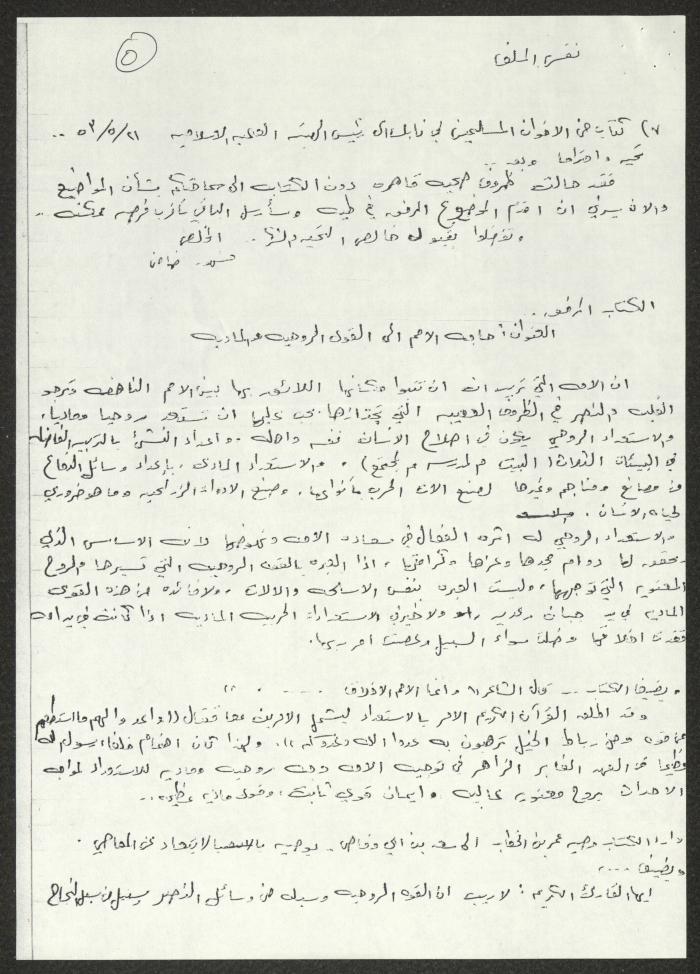 ٥
نفس الملف
٧) كتاب من الاخوان المسلمين في نابلس الى رئيس الهيئة العلمية الاسلامية ٥٣/٥/٢١ ..
تحية واحتراما وبعد ..
فقد حالت ظروف صحية قاهرة دون الكتاب الى سماحتكم بشأن المواضيع
والان يسرني ان اقدم الموضوع المرفق في طيه وسأرسل الباقي بأقرب فرصة ممكنة ..
وتفضلوا بقبول خالص التحية .. المخلص
الكتاب المرفق ..
العنوان: حاجة الامم الى القوى الروحية والمادية
ان الامة التي تريد ان تتبوأ مكانها اللائق بها بين الامم الناهضة وترجو
الغلبة والنصر في الظروف العصيبة التي تجتازها يجب عليها ان تستعد روحيا وماديا،
والاستعداد الروحي يكون في اصلاح الانسان نفسه واهله. واعداد النشئ بالتربية الفاضلة
في البيئات الثلاث (البيت والمدرسة والمجتمع). والاستعداد المادي، بإعداد وسائل الدفاع
من مصانع ومناجم وغيرها لصنع الات الحرب بأنواعها. وصنع الادوات الزراعية وما هو ضروري
لحياة الانسان.
والاستعداد الروحي له اثره الفعال في سعادة الامة ونهوضها لانه الاساس الذي
يحقق لها دوام مجدها وعزها وكرامتها، اذا العبرة بالقوة الروحية التي تسيرها والروح
المعنوية التي توجهها، وليست العبرة بنفس الاسلحة والالات، ولا فائدة من هذه القوى
المادية في يد جبان رعديد ولا خير في الاستعدادات الحربية المادية اذا كانت في يد امة
فقدت اخلاقها وضلت سواء السبيل وعصت امر ربها.
ويضيف الكتاب .. قال الشاعر (( وانما الامم الاخلاق .......... ))
وقد اطلق القرآن الكريم الامر بالاستعداد ليشمل الامرين معا فقال ((واعدوا لهم ما استطعتم
من قوة ومن رباط الخيل ترهبون به عدو الله وعدوكم)). ولهذا كان اهتمام خلفاء رسول الله
عظيما في العهد الغابر الزاهر في توجيه الامة وجهة روحية ومادية للاستعداد لمواجهة
الاحداث بروح معنوية عالية، وايمان قوي ثابت، وقوى مادية عظيمة..
وصية عمر بن الخطاب الى سعد بن ابي وقاص. يوصيه بالابتعاد عن المعاصي.
ويضيف ....
ايها القارئ الكريم: لا ريب ان القوة الروحية وسيلة من وسائل النصر وسبيل من سبل النجاح